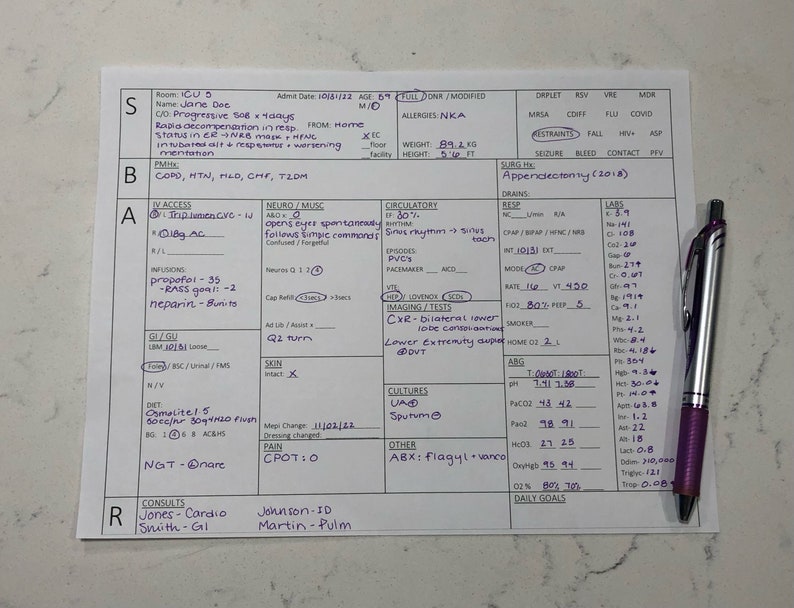 S
Room: ICU 5 Admit Date: 10/31/22 AGE: 59
Name: Jane Doe M/F
C/O: Progressive SOB x 4days
Rapid decompensation in resp. FROM: Home
status in ER → NRB mask + HFNC X EC
Intubated d/t ↓ resp status + worsening __floor
mentation __facility
FULL / DNR / MODIFIED
ALLERGIES: NKA
WEIGHT: 89.2 KG
HEIGHT: 5'6 FT
DRPLET RSV VRE MDR
MRSA CDIFF FLU COVID
RESTRAINTS FALL HIV+ ASP
SEIZURE BLEED CONTACT PFV
B
PMHx:
COPD, HTN, HLD, CHF, T2DM
SURG Hx:
Appendectomy (2018)
DRAINS:
A
IV ACCESS
R/L Trip lumen CVC - IJ
R/L 18g AC
R / L
INFUSIONS:
propofol - 35
- RASS goal: -2
heparin - 8units
GI / GU
LBM 10/31 Loose
Foley / BSC / Urinal / FMS
N / V
DIET:
Osmolite 1.5
50cc/hr 30q4 H2O flush
BG: 1 4 6 8 AC&HS
NGT - L nare
NEURO / MUSC
A&O x 0
opens eyes spontaneously
follows simple commands
Confused / Forgetful
Neuros Q 1 2 4
Cap Refill <3secs / >3secs
Ad Lib / Assist x
Q2 turn
SKIN
Intact: X
Mepi Change: 11/02/22
Dressing changed:
PAIN
CPOT: 0
CIRCULATORY
EF: 30%
RHYTHM:
Sinus rhythm → sinus
tach
EPISODES:
PVC's
PACEMAKER AICD
VTE:
HEP / LOVENOX SCDs
IMAGING / TESTS
CXR - bilateral lower
lobe consolidations
Lower Extremity duplex
DVT
CULTURES
UA +
Sputum
OTHER
ABX: flagyl + vanco
RESP
NC L/min R/A
CPAP / BIPAP / HFNC / NRB
INT 10/31 EXT
MODE AC CPAP
RATE 16 VT 450
FiO2 80% PEEP 5
SMOKER
HOME O2 2 L
ABG
T: 0630 T: 1800 T:
pH 7.41 7.38
PaCO2 43 42
Pao2 98 91
HcO3 27 25
OxyHgb 95 94
O2 % 80% 70%
LABS
K- 3.9
Na- 141
Cl- 108
Co2- 26
Gap- 6
Bun- 27↑
Cr- 0.67
Gfr- 97
Bg- 191↑
Ca- 9.1
Mg- 2.1
Phs- 4.2
Wbc- 8.4
Rbc- 4.18↓
Plt- 354
Hgb- 9.3↓
Hct- 30.0↓
Pt- 14.0↑
Aptt- 63.8
Inr- 1.2
Ast- 22
Alt- 18
Lact- 0.8
Ddim- >10,000
Triglyc- 121
Trop- 0.08
R
CONSULTS
Jones - Cardio Johnson - ID
Smith - GI Martin - Pulm
DAILY GOALS